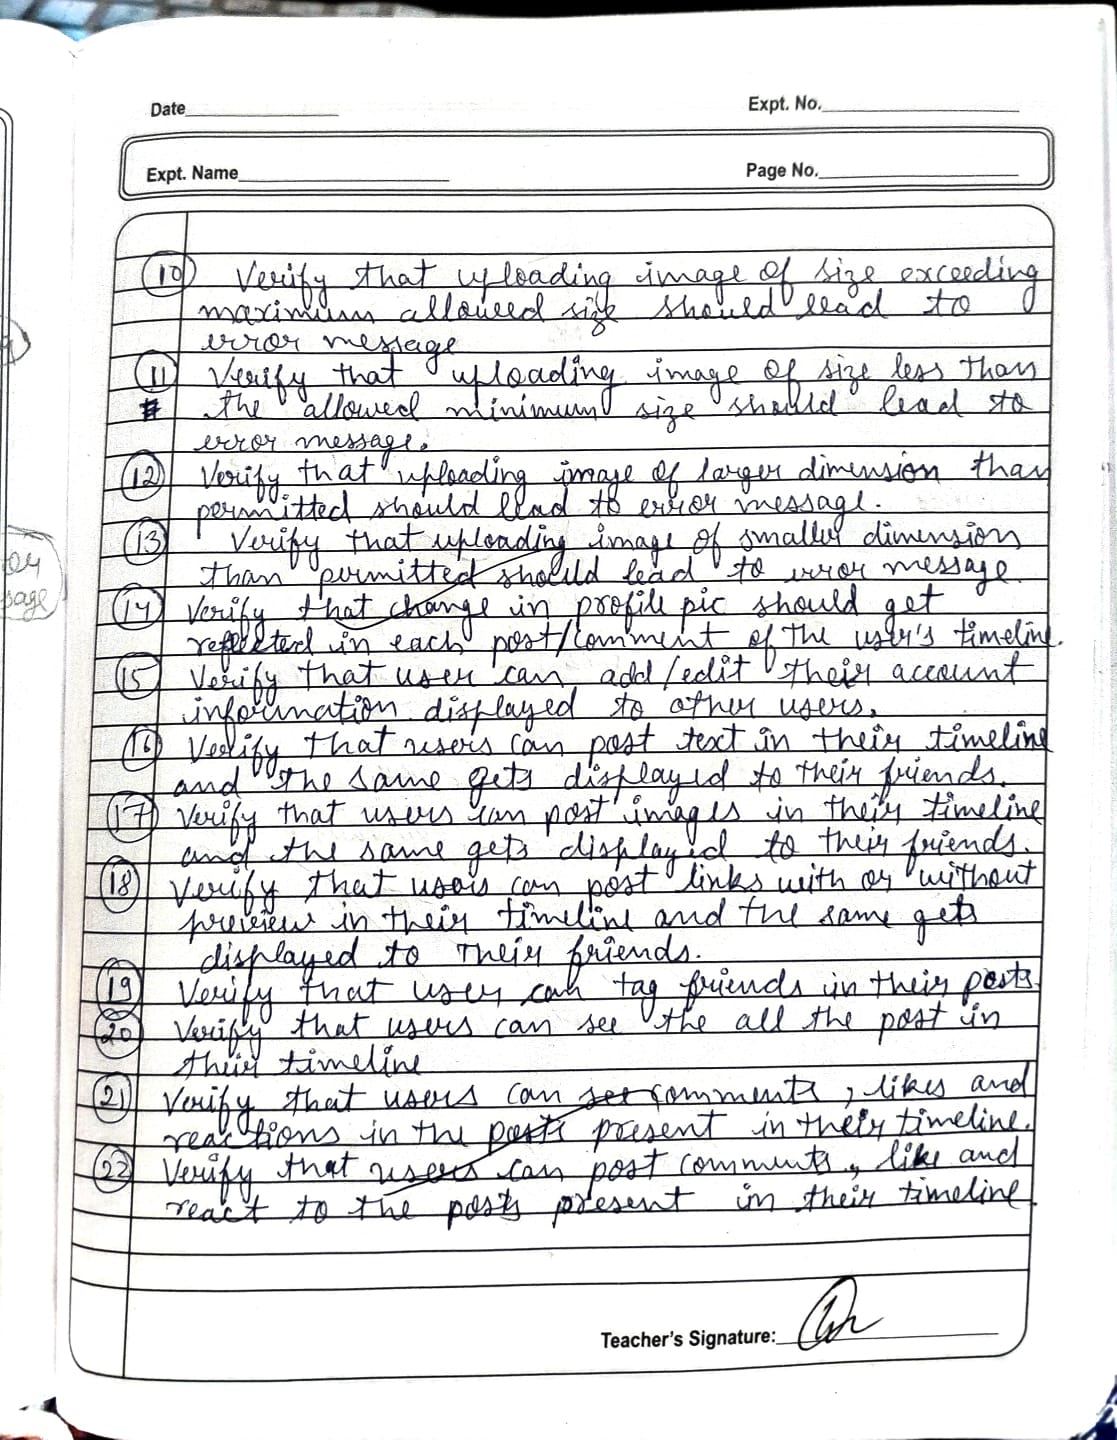 Date
Expt. No.
Expt. Name
Page No.
10 Verify that uploading image of size exceeding
maximum allowed size should lead to
error message
11 Verify that uploading image of size less than
the allowed minimum size should lead to
error message.
12 Verify that uploading image of larger dimension than
permitted should lead to error message.
13 Verify that uploading image of smaller dimension
than permitted should lead to error message
14 Verify that change in profile pic should get
reflected in each post/comment of the user's timeline.
15 Verify that user can add/edit their account
information displayed to other users.
16 Verify that users can post text in their timeline
and the same gets displayed to their friends.
17 Verify that users can post images in their timeline
and the same gets displayed to their friends.
18 Verify that users can post links with or without
preview in their timeline and the same gets
displayed to their friends.
19 Verify that user can tag friends in their posts.
20 Verify that users can see the all the post in
their timeline
21 Verify that users can see comments, likes and
reactions in the posts present in their timeline.
22 Verify that users can post comments, like and
react to the posts present in their timeline.
Teacher's Signature: